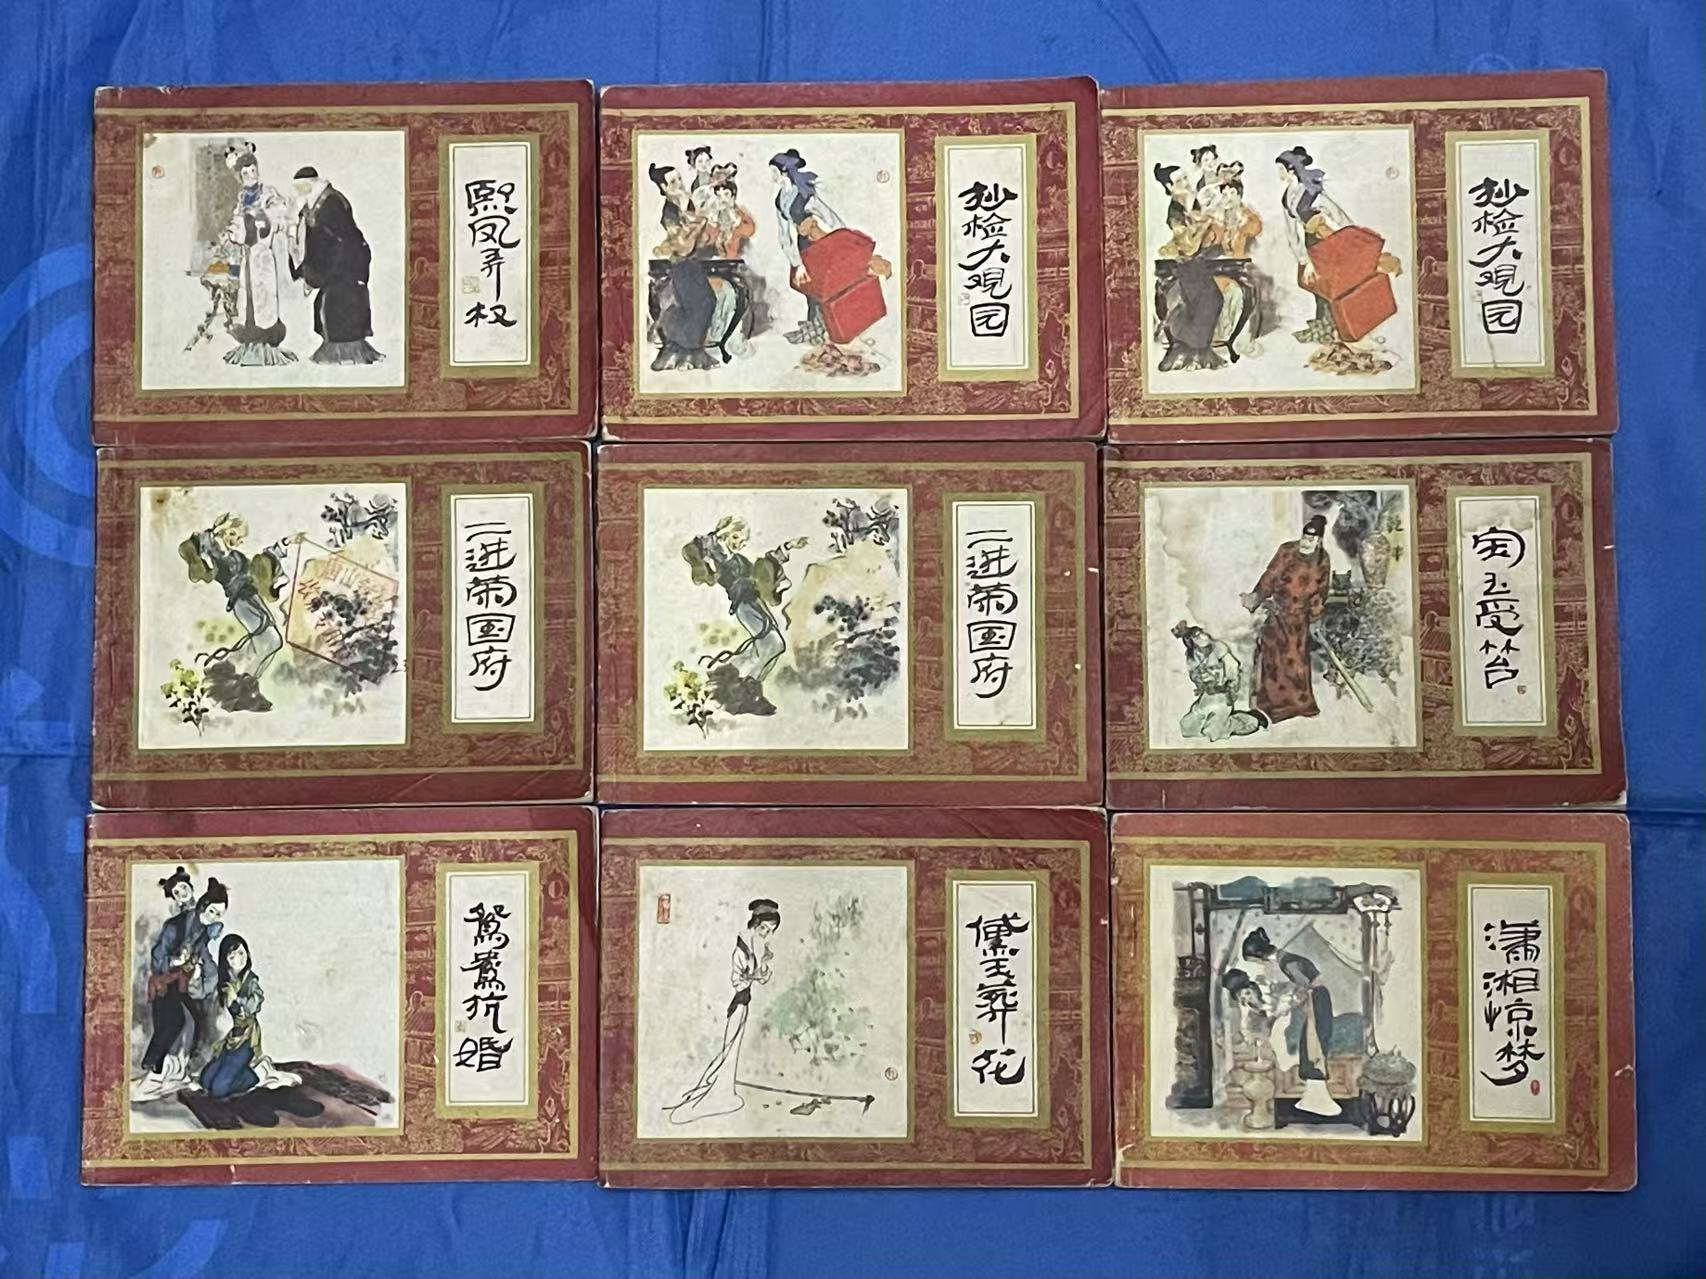 熙凤弄权
抄检大观园
抄检大观园
二进荣国府
二进荣国府
宝玉受笞
鸳鸯抗婚
黛玉葬花
潇湘惊梦